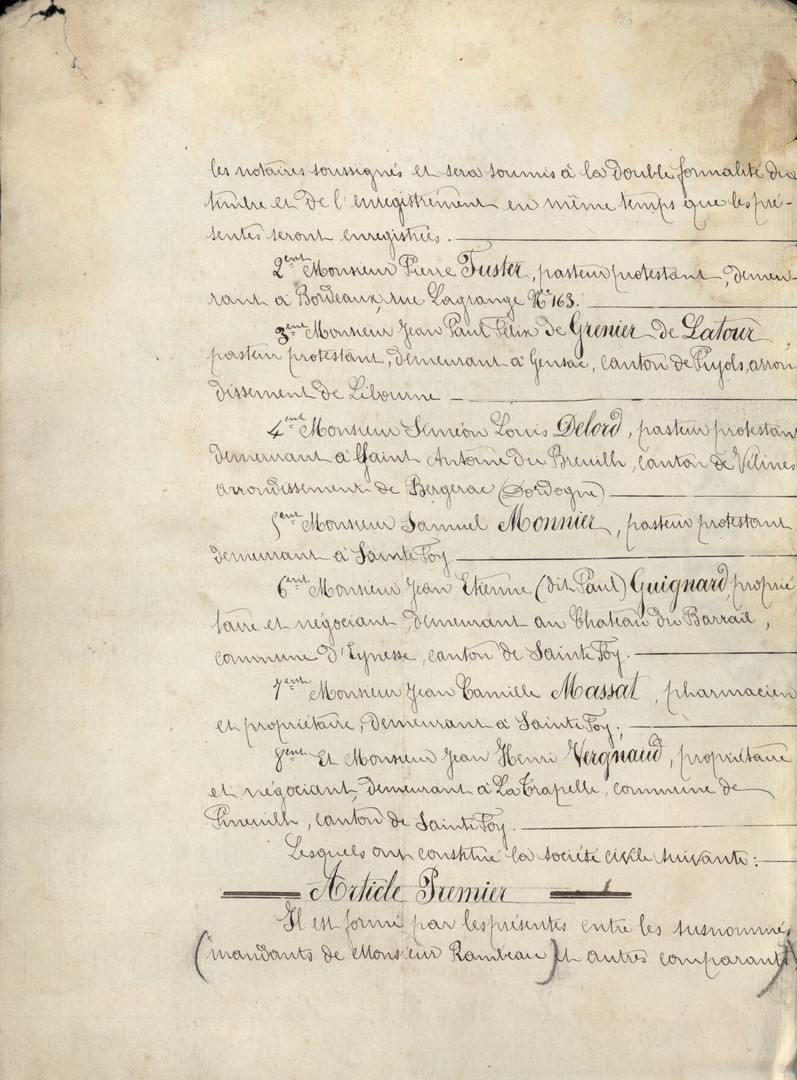 les notaires soussignés et sera soumis à la double formalité du
timbre et de l'enregistrement en même temps que les pré-
sentes seront enregistrées.
2ent Monsieur Pierre Fuster, pasteur protestant, demeu-
rant à Bordeaux, rue Lagrange No 163.
3ent Monsieur Jean Paul Félix de Grenier de Latour,
pasteur protestant, demeurant à Gensac, canton de Pujols, arron
dissement de Libourne
4ent Monsieur Siméon Louis Delord, pasteur protestan
demeurant à Saint Antoine du Breuilh, canton de Vélines
arrondissement de Bergerac (Dordogne)
5ent Monsieur Samuel Monnier, pasteur protestant
demeurant à Sainte Foy
6ent Monsieur Jean Etienne (dit Paul) Guignard, proprié
taire et négociant, demeurant au Chateau du Barrail,
commune d'Eynesse, canton de Sainte Foy.
7ent Monsieur Jean Camille Massat, pharmacien
et propriétaire, demeurant à Sainte Foy;
8ent Et Monsieur Jean Henri Vergnaud, propriétaire
et négociant, demeurant à La Trapelle, commune de
Pineuilh, canton de Sainte Foy.
Lesquels ont constitué la société civile suivante:
Article Premier
Il est formé par les présentes entre les susnommés
(mandants de Monsieur Rambeau) et autres comparants)